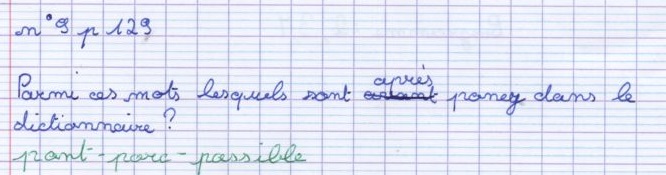 n°9 p 129
Parmi ces mots lesquels sont après poney dans le
dictionnaire ?
pont - porc - possible